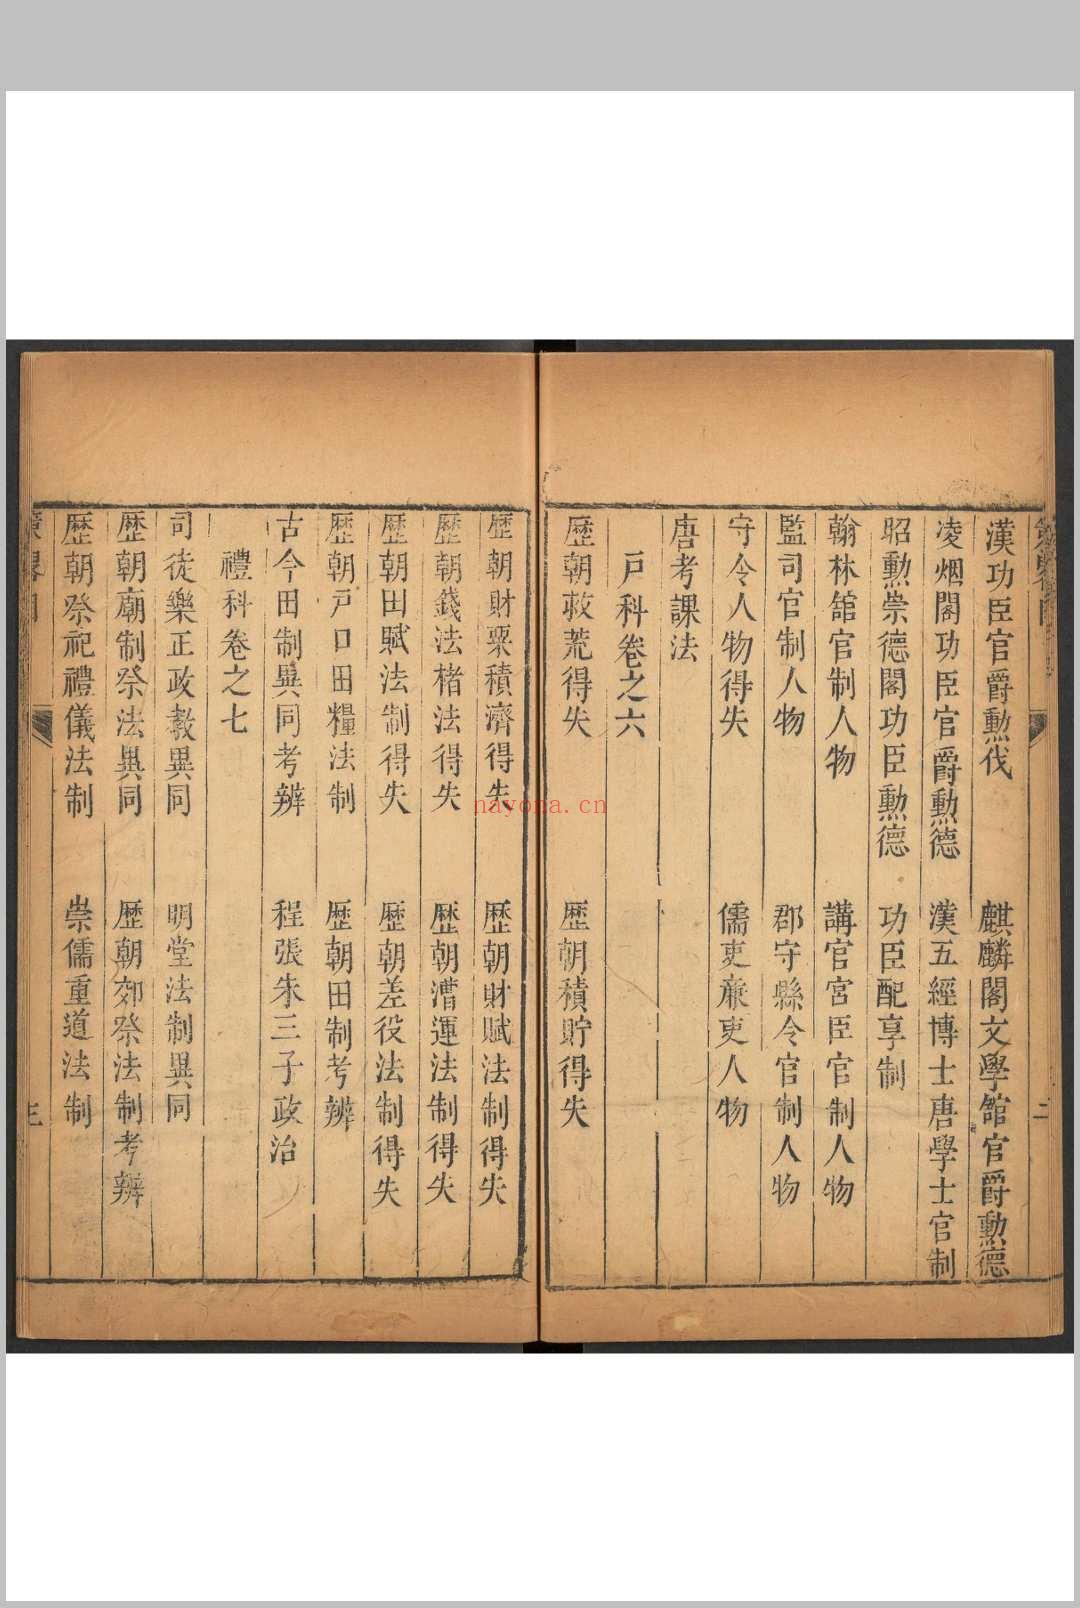 漢功臣官爵勲伐　麒麟閣文學館官爵勲德
凌烟閣功臣官爵勲德　漢五經博士唐學士官制
昭勲崇德閣功臣勲德　功臣配享制
翰林舘官制人物　講官宮臣官制人物
監司官制人物　郡守縣令官制人物
守令人物得失　儒吏廉吏人物
唐考課法
戸科卷之六
歷朝救荒得失　歷朝積貯得失
二
歷朝財粟積濟得失　歷朝財賦法制得失
歷朝錢法楮法得失　歷朝漕運法制得失
歷朝田賦法制得失　歷朝差役法制得失
歷朝戸口田糧法制　歷朝田制考辨
古今田制異同考辨　程張朱三子政治
禮科卷之七
司徒樂正政教異同　明堂法制異同
歷朝廟制祭法異同　歷朝郊祭法制考辨
歷朝祭祀禮儀法制　崇儒重道法制
三
nayona.cn